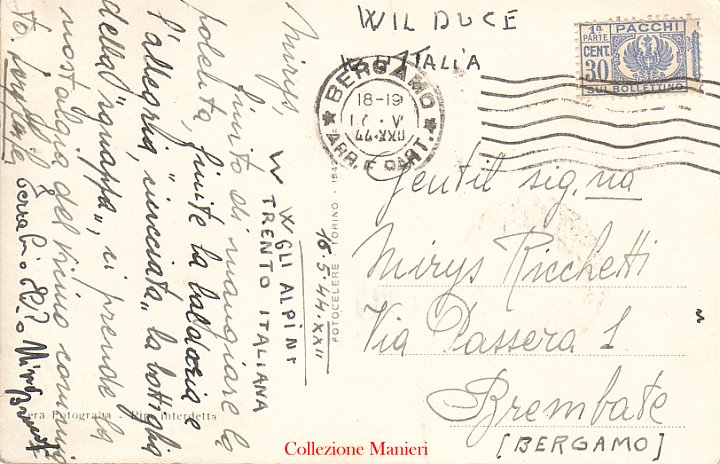 W IL DUCE
W L'ITALIA
1ª PARTE PACCHI
CENT. 30
SUL BOLLETTINO
★ BERGAMO ★
18-19
17. V
44.XXII
ARR. E PART.
Gentil sig.na
Mirys Ricchetti
Via Passera 1
Brembate
[BERGAMO]
Mirys,
finito di mangiare la
polenta, finite la baldoria e
l'allegria, la bottiglia
della "squassa", si prende la
nostalgia del
to.
W GLI ALPINI
W TRENTO ITALIANA
16.5.44.XXII
FOTOCELERE TORINO
Vera Fotografia - Rip. interdetta
Collezione Manieri